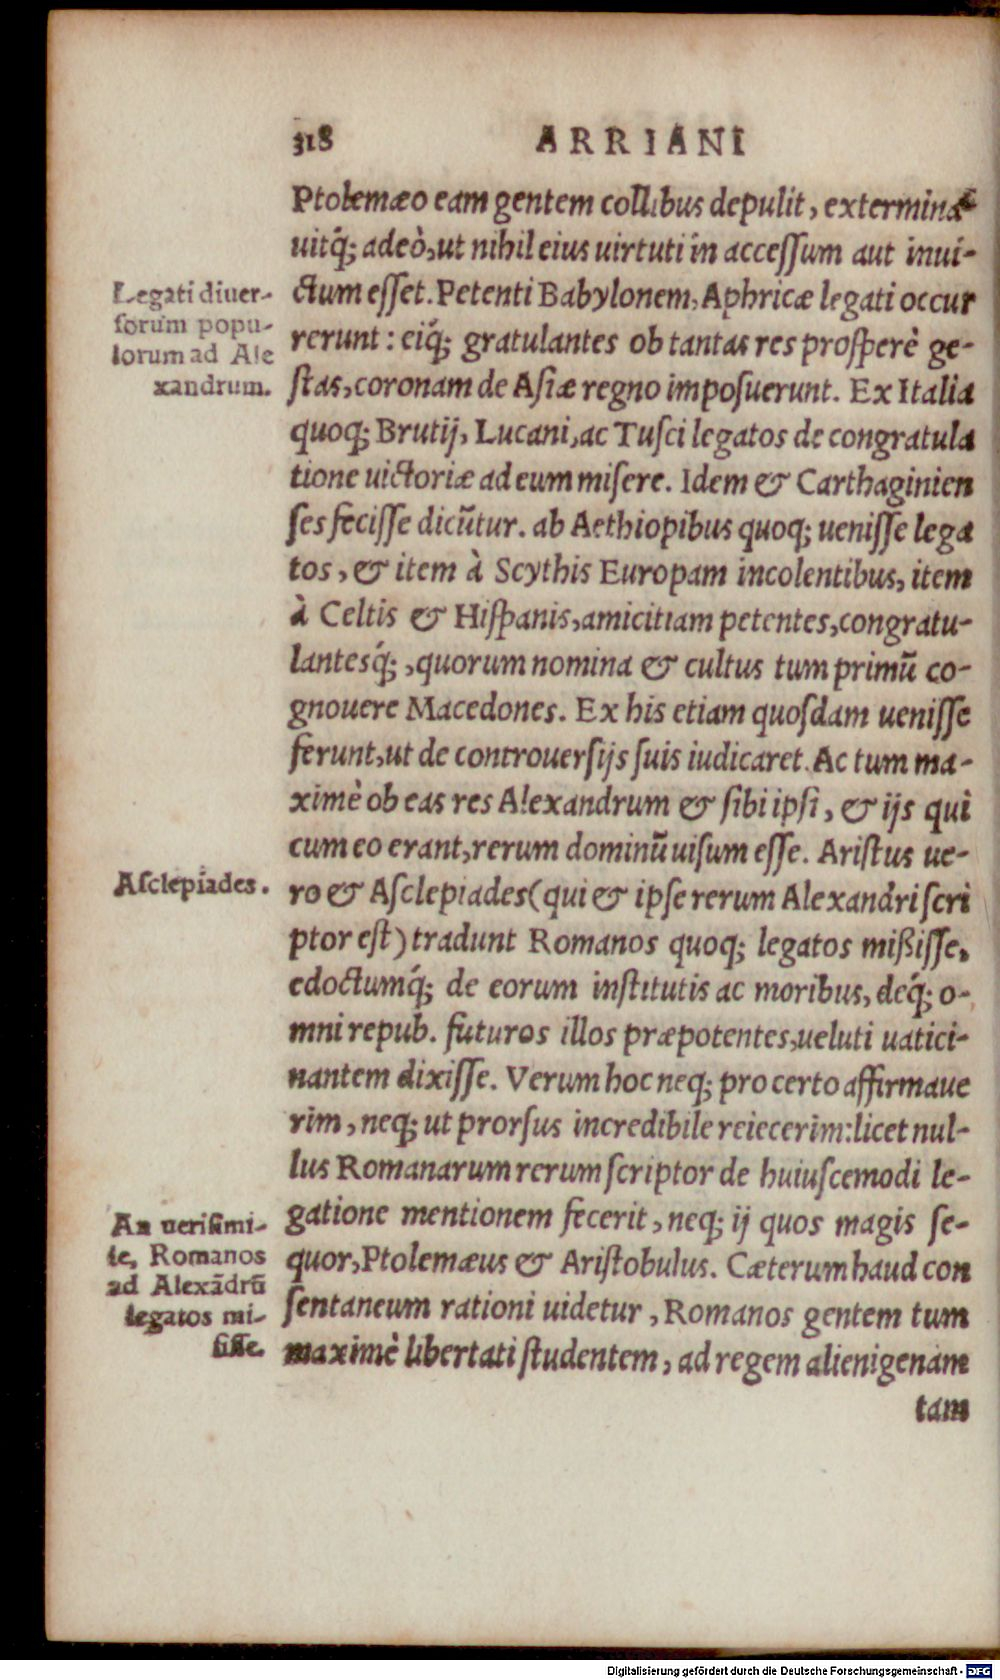 318 ARRIANI
Ptolemæo eam gentem collibus depulit, extermina
uitq́; adeò, ut nihil eius uirtuti in accessum aut inui-
Legati diuer-
ctum esset. Petenti Babylonem, Aphricæ legati occur
sorum popu-
rerunt: eiq́; gratulantes ob tantas res prosperè ge-
lorum ad Ale
xandrum.
stas, coronam de Asiæ regno imposuerunt. Ex Italia
quoq; Brutij, Lucani, ac Tusci legatos de congratula
tione uictoriæ ad eum misere. Idem & Carthaginien
ses fecisse dicūtur. ab Aethiopibus quoq; uenisse lega
tos, & item à Scythis Europam incolentibus, item
à Celtis & Hispanis, amicitiam petentes, congratu-
lantesq́; , quorum nomina & cultus tum primū co-
gnouere Macedones. Ex his etiam quosdam uenisse
ferunt, ut de controuersijs suis iudicaret. Ac tum ma-
ximè ob eas res Alexandrum & sibi ipsi, & ijs qui
cum eo erant, rerum dominū uisum esse. Aristus ue-
Asclepiades.
ro & Asclepiades (qui & ipse rerum Alexandri scri
ptor est) tradunt Romanos quoq; legatos mißisse,
edoctumq́; de eorum institutis ac moribus, deq́; o-
mni repub. futuros illos præpotentes, ueluti uatici-
nantem dixisse. Verum hoc neq; pro certo affirmaue
rim, neq; ut prorsus incredibile reiecerim: licet nul-
lus Romanarum rerum scriptor de huiuscemodi le-
An uerisimi-
le, Romanos
ad Alexādrū
legatos mi-
sisse.
gatione mentionem fecerit, neq; ij quos magis se-
quor, Ptolemæus & Aristobulus. Cæterum haud con
sentaneum rationi uidetur, Romanos gentem tum
maximè libertati studentem, ad regem alienigenam
tam
Digitalisierung gefördert durch die Deutsche Forschungsgemeinschaft - DFG